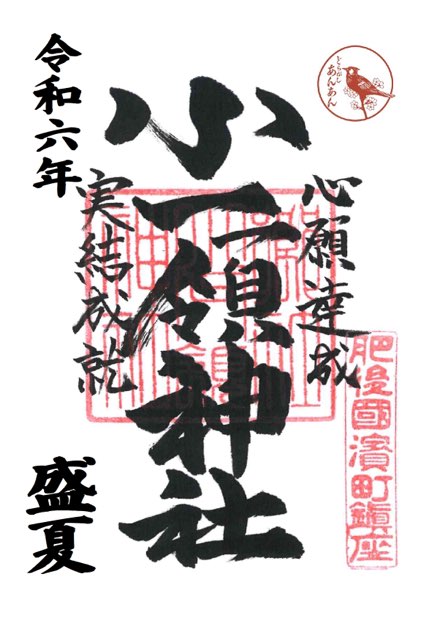 あんあん
心願達成
肥後國濱町鎭座
小一領神社
実結成就
令和六年
盛夏